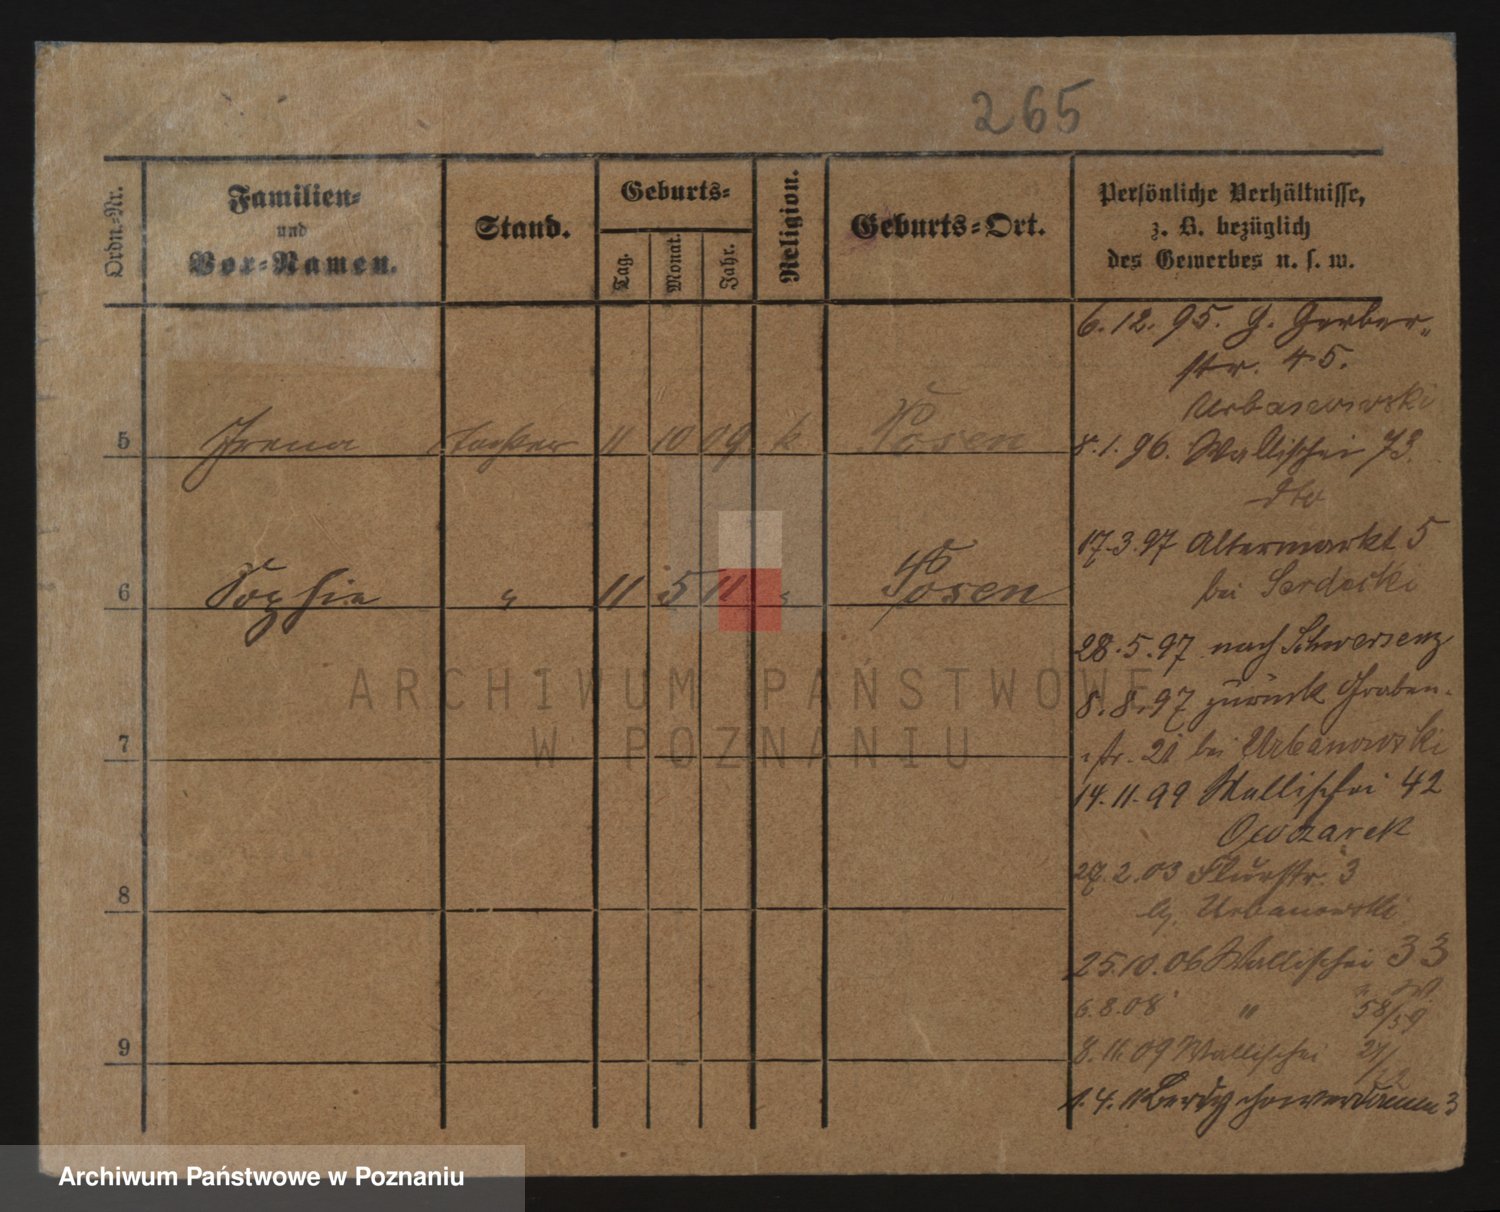 265
Ordn.-Nr.
Familien-
und
Vor-Namen.
Stand.
Geburts-
Tag.
Monat.
Jahr.
Religion.
Geburts-Ort.
Persönliche Verhältnisse,
z. B. bezüglich
des Gewerbes u. s. w.
5 Irena Tochter 11 10 09 k Posen
6 Sophie " 11 5 11 " Posen
7
8
9
6.12.95. G. Gerber-
str. 45.
Urbanowski
8.1.96. Wallischei 73.
dto
17.3.97 Altermarkt 5
bei Serdecki
28.5.97 nach Schwersenz
8.8.97 zurück Graben-
str. 21 bei Urbanowski
14.11.99 Wallischei 42
Owczarek
27.2.03 Flurstr. 3
Urbanowski
25.10.06 Wallischei 33
6.8.08 " 58/59
8.11.09 Wallischei
1.4.11 Berdychowerdamm 3
ARCHIWUM PAŃSTWOWE
W POZNANIU
Archiwum Państwowe w Poznaniu